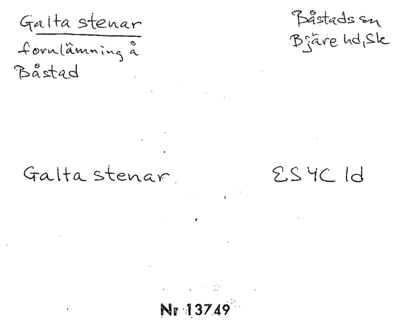 Galta stenar
fornlämning å
Båstad
Båstads sn
Bjäre hd, Sk
Galta stenar
ES4C 1d
Nr 13749